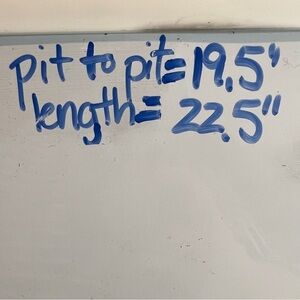 pit to pit= 19.5"
length= 22.5"